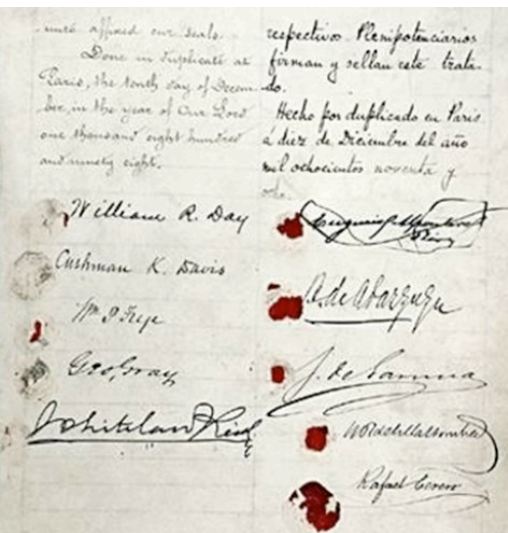 affixed our seals.
Done in duplicate at
Paris, the tenth day of Decem-
ber, in the year of Our Lord
one thousand eight hundred
and ninety eight.
William R. Day
Cushman K. Davis
Wm P Frye
Geo. Gray
Whitelaw Reid
respectivos Plenipotenciarios
firman y sellan este trata-
do.
Hecho por duplicado en Paris
á diez de Diciembre del año
mil ochocientos noventa y
ocho.
B. de Abarzuza
J. de Garnica
Rafael Cerero